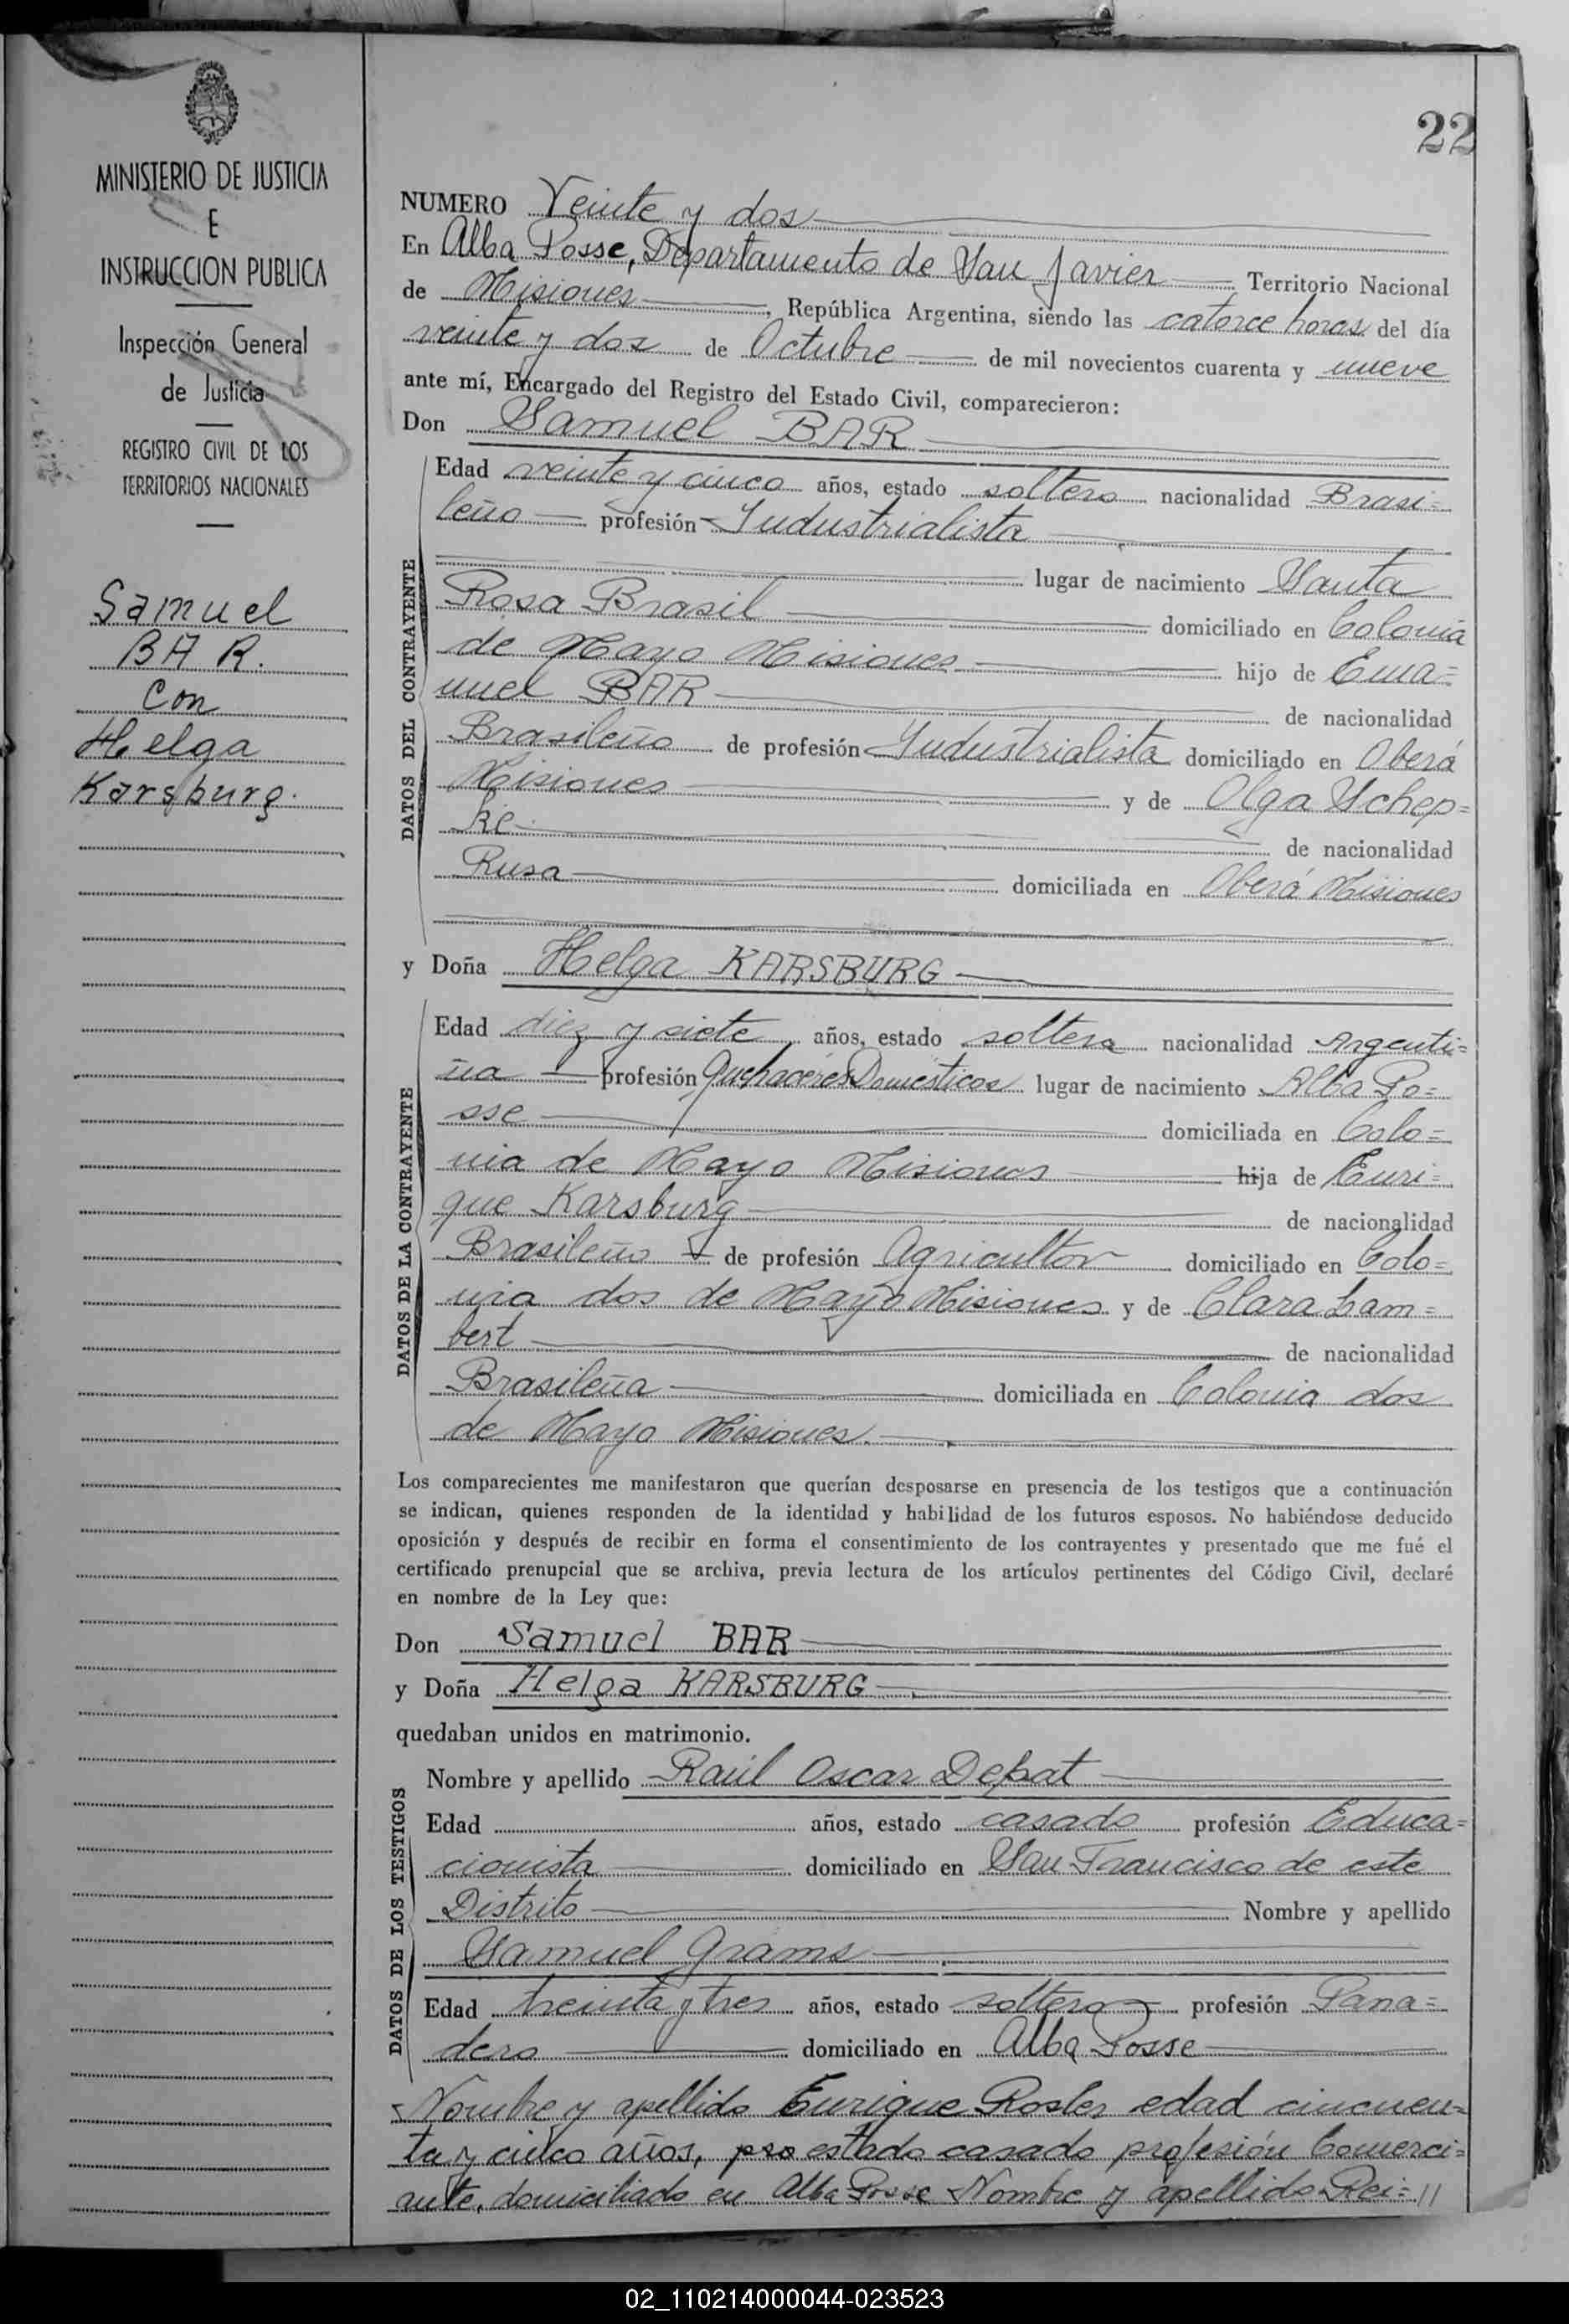 22
MINISTERIO DE JUSTICIA
E
INSTRUCCION PUBLICA
Inspección General
de Justicia
REGISTRO CIVIL DE LOS
TERRITORIOS NACIONALES
Samuel
BAR.
con
Helga
Karsburg.
NUMERO Veinte y dos
En Alba Posse, Departamento de San Javier Territorio Nacional
de Misiones, República Argentina, siendo las catorce horas del día
veinte y dos de Octubre de mil novecientos cuarenta y nueve
ante mí, Encargado del Registro del Estado Civil, comparecieron:
Don Samuel BAR
DATOS DEL CONTRAYENTE
Edad veinte y cinco años, estado soltero nacionalidad Brasi=
leño profesión Industrialista
lugar de nacimiento Santa
Rosa Brasil domiciliado en Colonia
de Mayo Misiones hijo de Ema=
nuel BAR de nacionalidad
Brasileño de profesión Industrialista domiciliado en Oberá
Misiones y de Olga Schep=
ke de nacionalidad
Rusa domiciliada en Oberá Misiones
y Doña Helga KARSBURG
DATOS DE LA CONTRAYENTE
Edad diez y siete años, estado soltera nacionalidad Argenti=
na profesión Quehaceres Domésticos lugar de nacimiento Alba Po=
sse domiciliada en Colo=
nia de Mayo Misiones hija de Enri=
que Karsburg de nacionalidad
Brasileño de profesión Agricultor domiciliado en Colo=
nia dos de Mayo Misiones y de Clara Lam=
bert de nacionalidad
Brasileña domiciliada en Colonia dos
de Mayo Misiones.
Los comparecientes me manifestaron que querían desposarse en presencia de los testigos que a continuación
se indican, quienes responden de la identidad y habilidad de los futuros esposos. No habiéndose deducido
oposición y después de recibir en forma el consentimiento de los contrayentes y presentado que me fué el
certificado prenupcial que se archiva, previa lectura de los artículos pertinentes del Código Civil, declaré
en nombre de la Ley que:
Don Samuel BAR
y Doña Helga KARSBURG
quedaban unidos en matrimonio.
DATOS DE LOS TESTIGOS
Nombre y apellido Raúl Oscar Depat
Edad años, estado casado profesión Educa=
cionista domiciliado en San Francisco de este
Distrito Nombre y apellido
Samuel Grams
Edad treinta y tres años, estado soltero profesión Pana=
dero domiciliado en Alba Posse
Nombre y apellido Enrique Rosler edad cincuen=
ta y cinco años, pro estado casado profesión Comerci=
ante, domiciliado en Alba Posse Nombre y apellido Rei= //
02_110214000044-023523